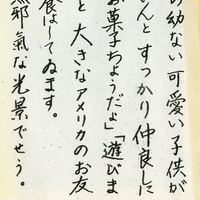 の幼ない可愛い子供が
んとすっかり仲良しに
お菓子ちようだよ」「遊びま
と大きなアメリカのお友
食はしてゐます。
邪氣な光景でせう。